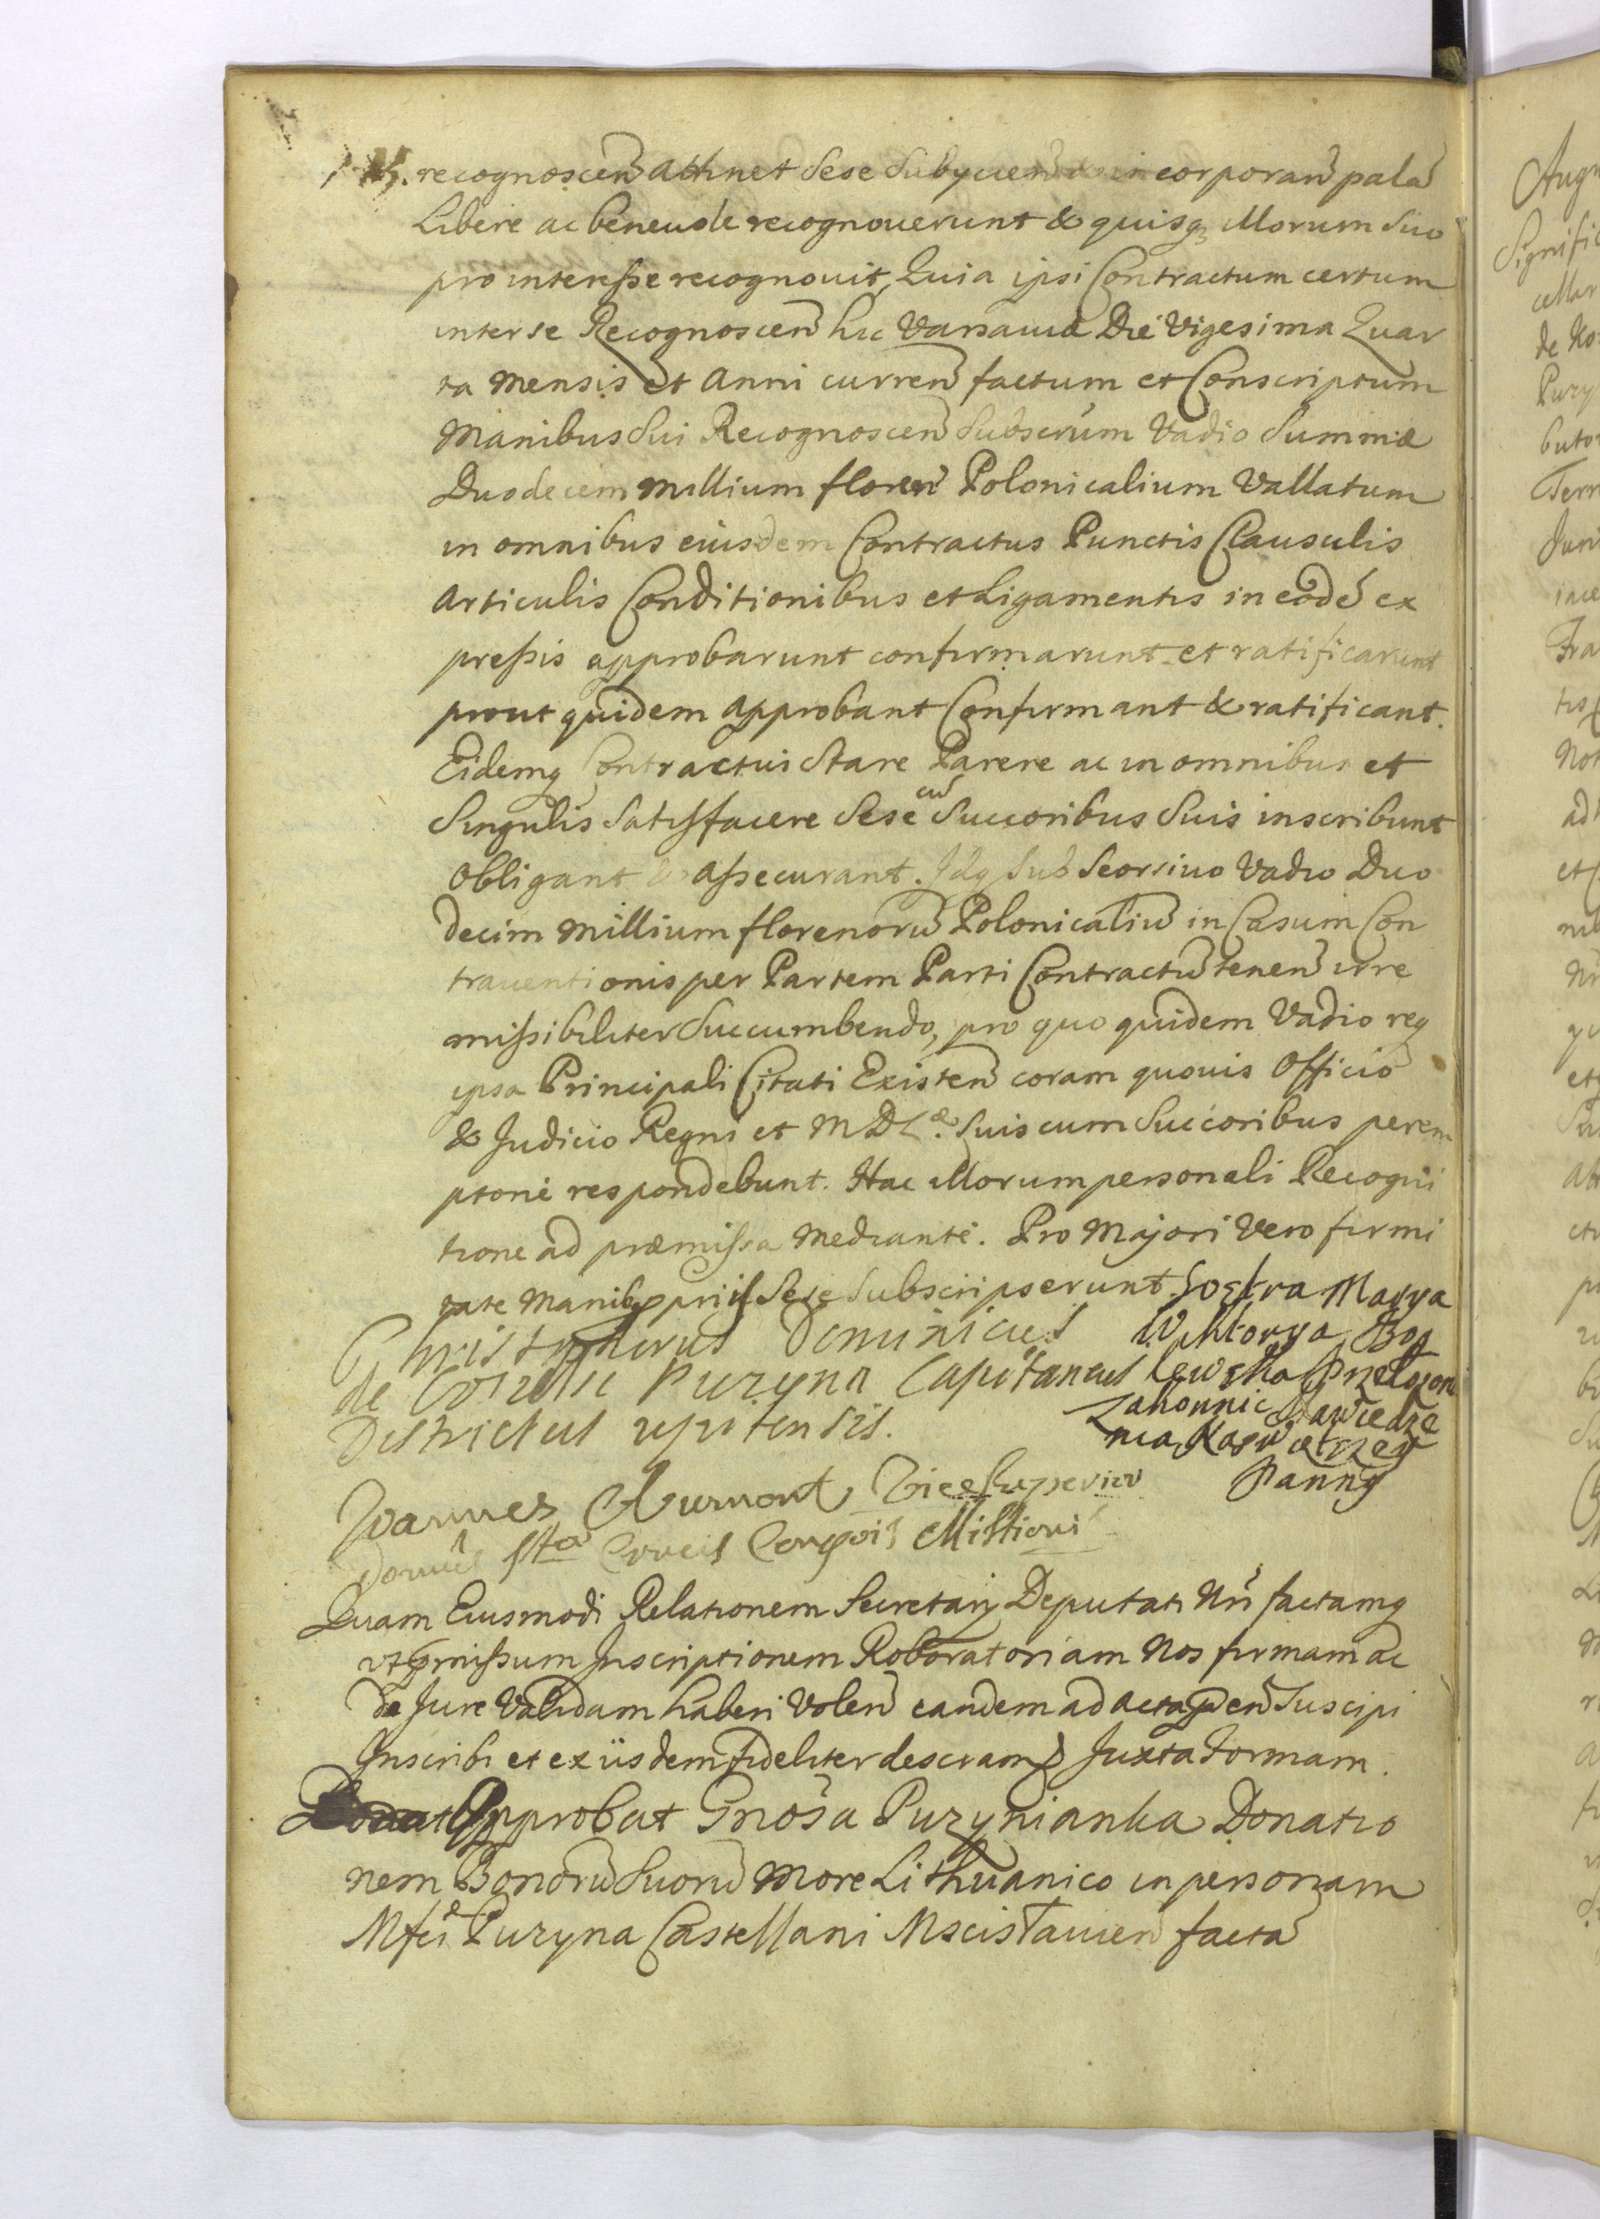 recognoscen̄ attinet Sese Subycien̄ in corporan̄ palā
Libere ac beneuole recognouerunt & quisq3 illorum Suo
pro interesse recognouit, Quia ipsi Contractum certum
inter se Recognoscen̄ hic Varsauiæ Die Vigesima Quar
ta Mensis et Anni curren̄ factum et Conscriptum
Manibus Sui Recognoscen̄ Subscrūm Vadio Summæ
Duodecem Millium floren̄ Polonicalium Vallatum
in omnibus eiusdem Contractus Punctis Clausulis
Articulis Conditionibus et Ligamentis in eodē ex
pressis approbarunt confirmarunt et ratificarunt
prout quidem approbant Confirmant & ratificant.
Eidemq Contractui Stare Parere ac in omnibus et
Singulis Satisfacere Sese cū Succoribus Suis inscribunt
Obligant & assecurant. Idq Sub Seorsiuo Vadio Duo
decim Millium florenorū Polonicaliū in Casum Con
trauentionis per Partem Parti Contractū tenen̄ irre
missibiliter Succumbendo, pro quo quidem Vadio req
ipsa Principali Citati Existen̄ coram quouis Officio
& Judicio Regni et M D L. Suis cum Succoribus perem
ptorie respondebunt. Hac illorum personali Recogni
tione ad præmissa Mediante. Pro Majori Vero firmi
tate Manibq ppriis Sese Subscripserunt. Sostra Marya
Christophorus Dominicus Wiktorya Bog
de Kozielsk Puzyna Capitaneus lewska Przelozon
Districtus upitensis. Zakonnic Nawiedze
nia Nasw etszey
Panny
Joannes Aumont Vice Superior
Domûs Stæ Crucis Congois Missionis
Quam Eiusmodi Relationem Secretarij Deputati Nri factamq
vt pmissum Inscriptionem Roboratoriam Nos firmam ac
de Jure Validam haberi Volen̄ eandem ad Acta pn̄ Suscipi
Inscribi et ex iisdem fideliter descr am Juxta Formam.
Approbat Gnosa Puzynianka Donatio
nem Bonorū Suorū More Lithuanico in personam
Mfci Puzyna Castellani Mscislauien̄ factā